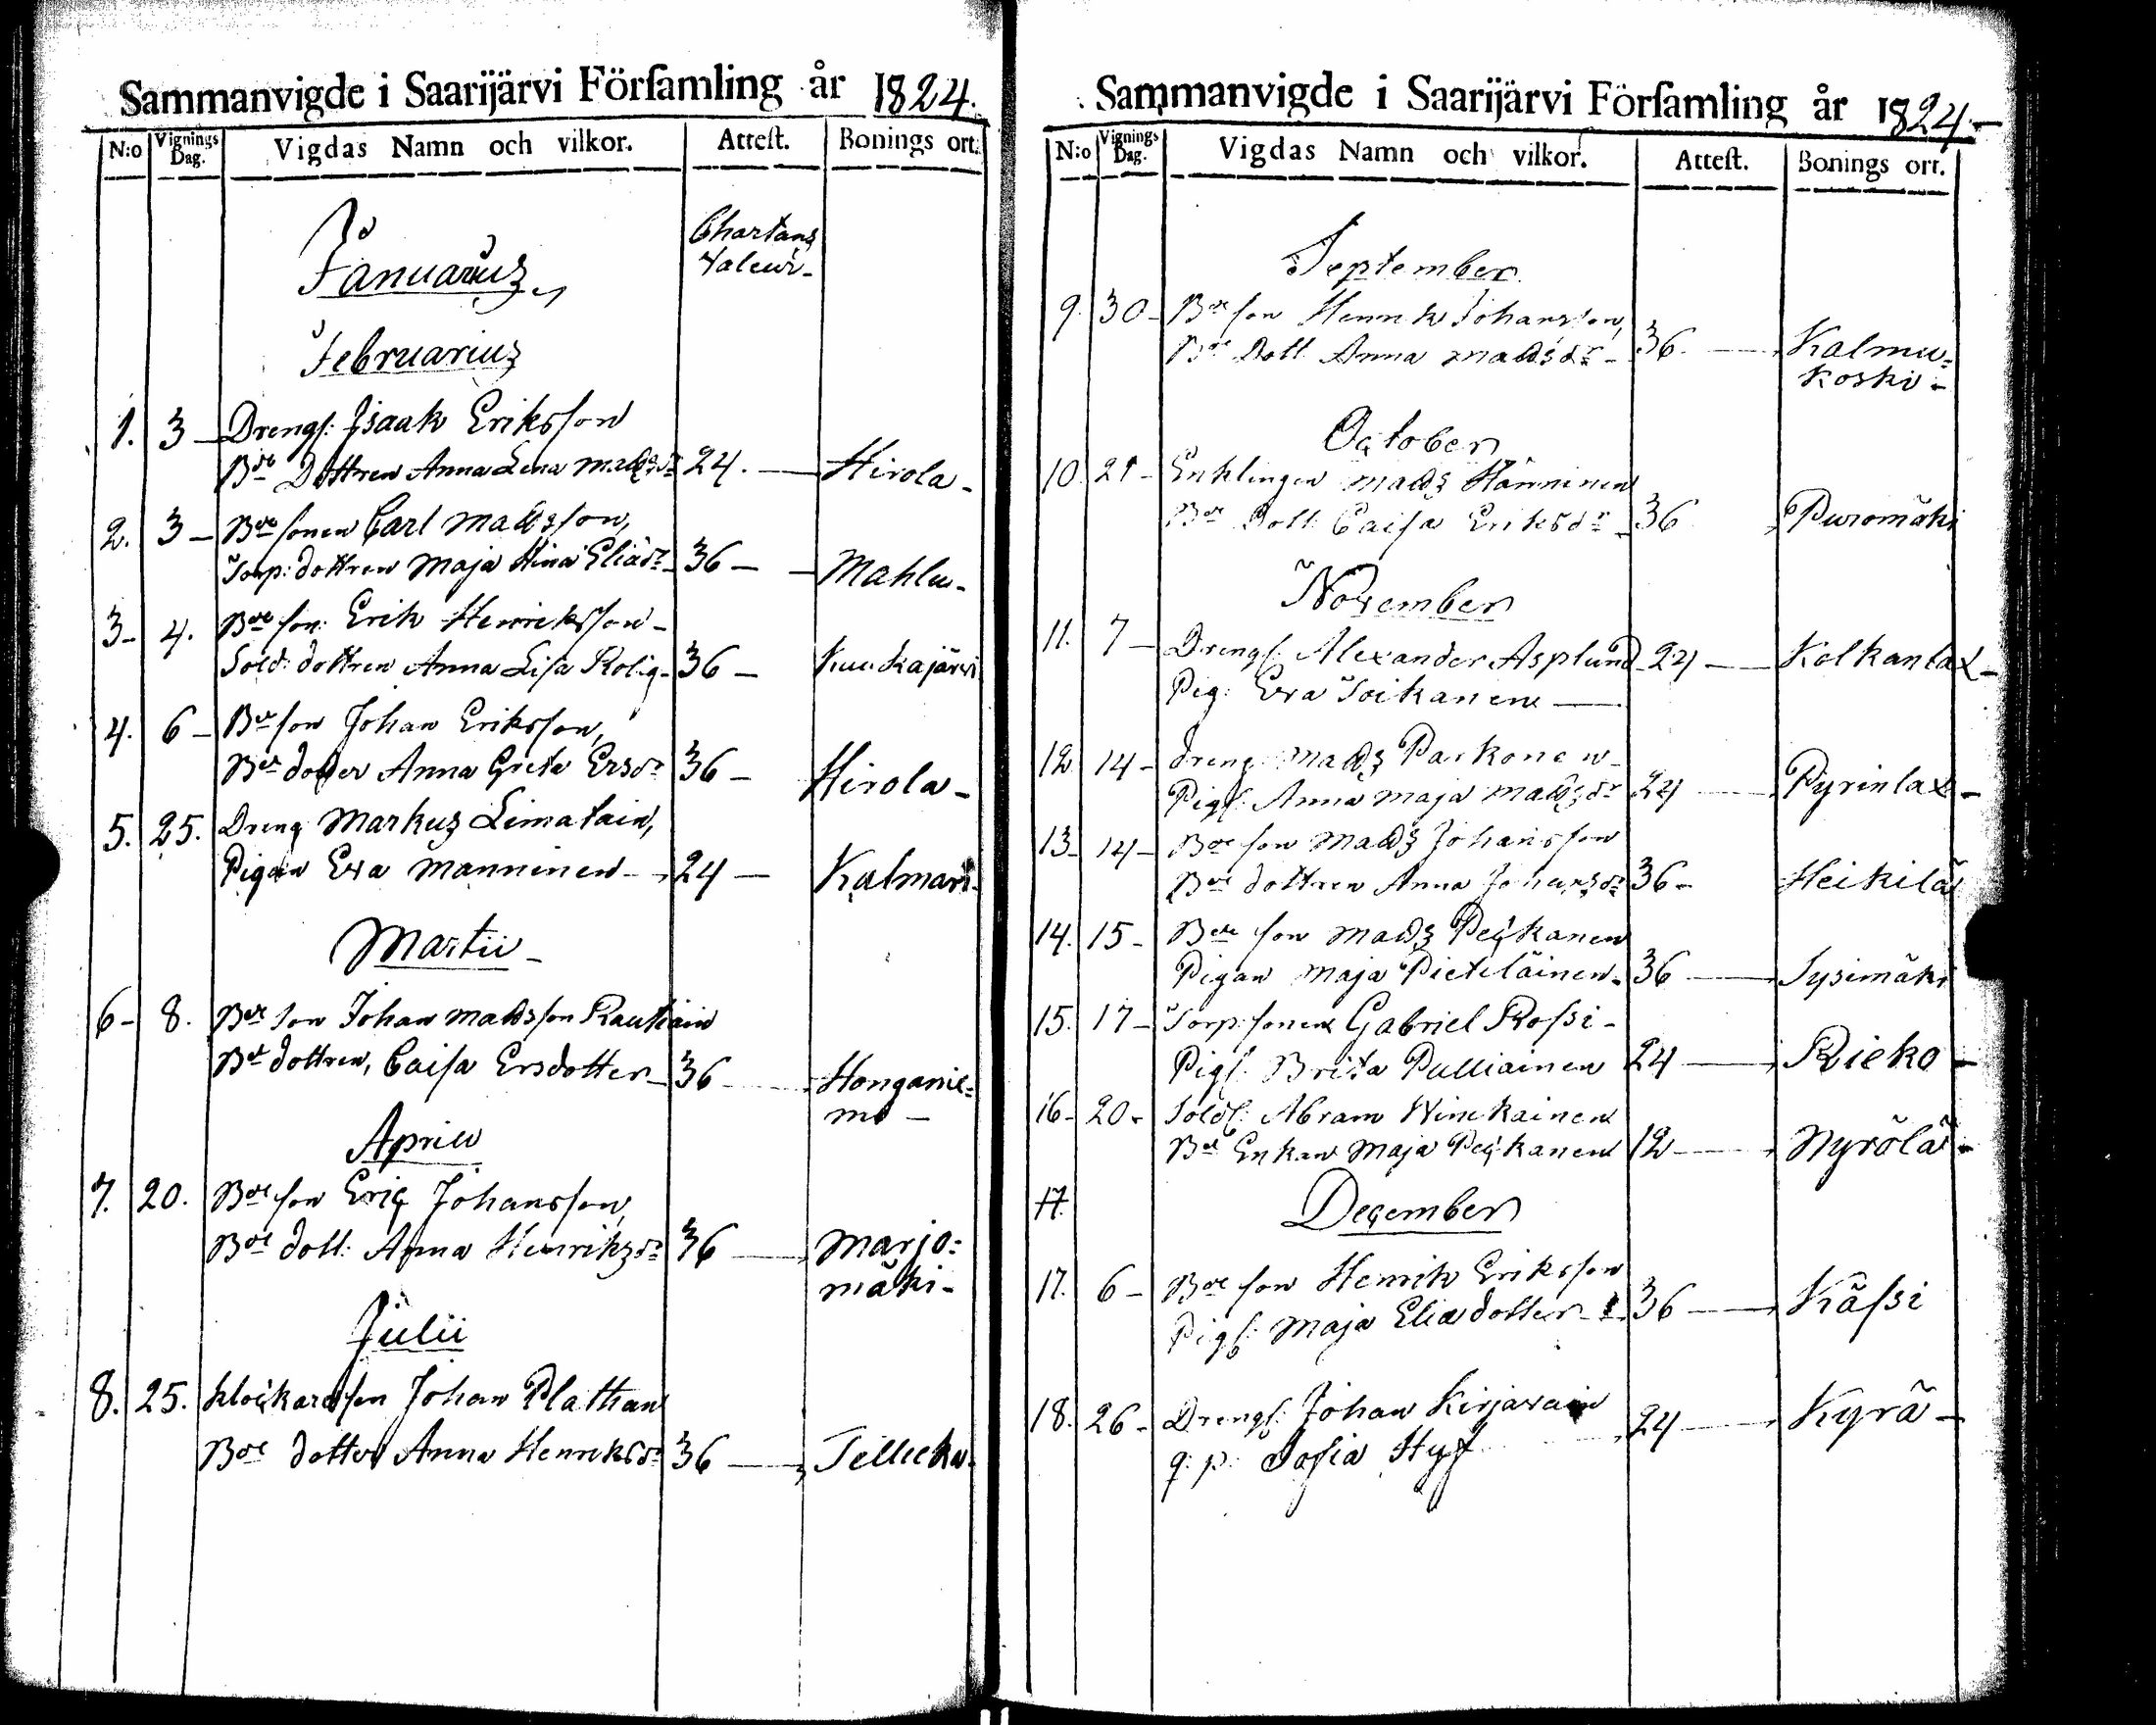 Sammanvigde i Saarijärvi Församling år 1824.
N:o Vignings Dag. Vigdas Namn och vilkor. Attest. Bonings ort.
Januarius Chartans
Valeur
Februarius
1. 3 Drengs: Isaak Eriksson
Bde Dottren Anna Lena Matsdr 24. Hirola
2. 3 Bde sonen Carl Mattsson,
Torp: dottren Maja Stina Eliädr 36 Mahlu
3 4. Bde son Erik Henriksson
Sold: dottren Anna Lisa Rolig 36 Kuukajärvi
4. 6 Bde son Johan Eriksson,
Bde dotter Anna Greta Ersdr 36 Hirola
5. 25. Dreng Markus Limatain,
Pigan Eva Manninen 24 Kalmari
Martii
6 8. Bde son Johan Mattsson Rautiain
Bde dottren, Caisa Ersdotter 36 Honganie=
mi
Aprill
7. 20. Bde son Eric Johansson,
Bde dott: Anna Henriksdr 36 Marjo=
mäki
Julii
8. 25. Klockare son Johan Plathan
Bde dotter Anna Henriksdr 36 Tellicka
Sammanvigde i Saarijärvi Församling år 1824.
N:o Vignings Dag. Vigdas Namn och vilkor. Attest. Bonings ort.
September
9. 30 Bde son Henrik Johansson,
Bde Dott. Anna Matsdr 36. Kalmu=
koski
October
10. 21 Enklingen Mats Hänninen
Bde Dott: Caisa Eriksdr 36 Puromäki
November
11. 7 Drengs: Alexander Asplund 24 Kolkanlax
Pig: Eva Soikanen
12 14 dreng Mats Parkonen
Pigs: Anna Maja Matsdr 24 Pyrinlax
13 14 Bde son Mats Johansson
Bde dottren Anna Johansdr 36 Heikilä
14. 15 Bde son Mats Peckanen
Pigan Maja Pieteläinen 36 Sysimäki
15. 17 Torp: sonen Gabriel Rossi
Pigs: Brita Pulliainen 24 Rieko
16 20 Sold: Abram Winikainen
Bde Enkan Maja Peckanen 12 Nyrölä
17.
December
17. 6 Bde son Henrik Eriksson
Pigs: Maja Elia dotter 36 Kässi
18. 26 Drengs: Johan Kirjavain 24 Kyrä
q: p: Sofia Hyf